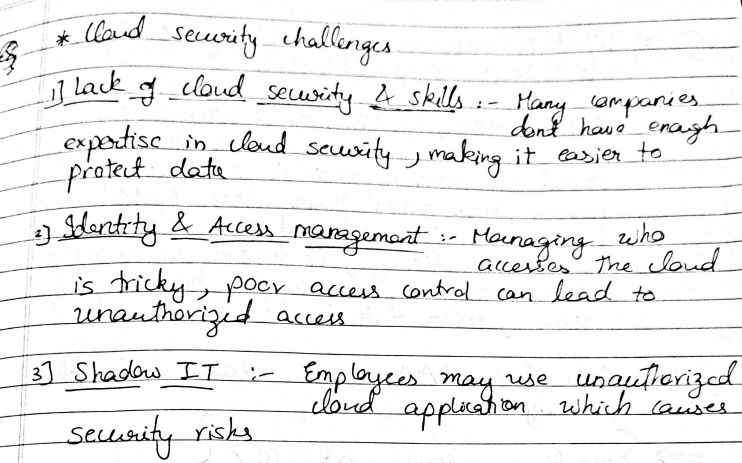 * Cloud security challenges
1] Lack of cloud security & skills :- Many companies
dont have enough
expertise in cloud security, making it easier to
protect data
2] Identity & Access management :- Managing who
accesses the cloud
is tricky, poor access control can lead to
unauthorized access
3] Shadow IT :- Employees may use unauthorized
cloud application which causes
security risks